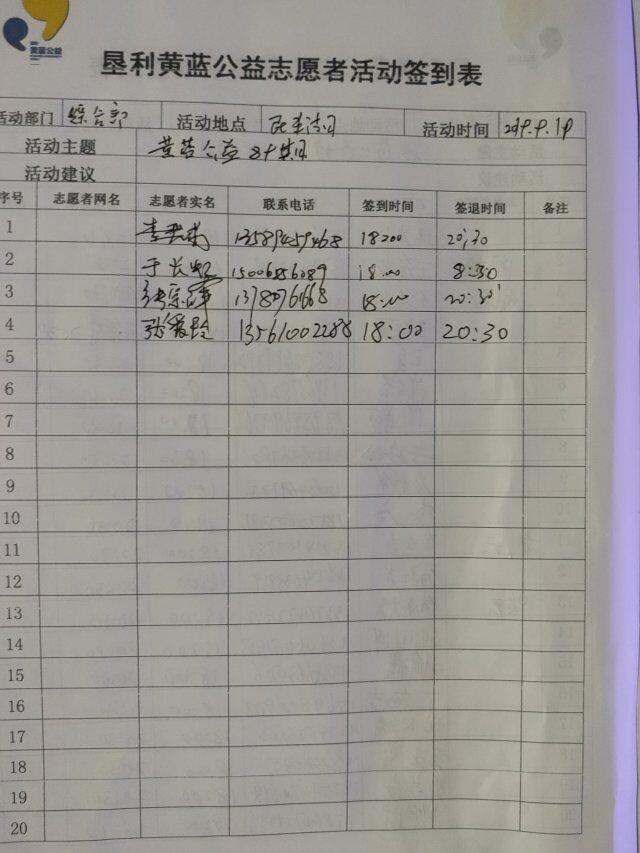 黄蓝公益
垦利黄蓝公益志愿者活动签到表
活动部门 综合部 活动地点 活动时间 2019.9.19
活动主题 黄蓝公益
活动建议
序号 志愿者网名 志愿者实名 联系电话 签到时间 签退时间 备注
1 13589459468 18:00 20:30
2 于长 15006856089 18:00 8:30
3 18:00 20:30
4 张 13561002288 18:00 20:30
5
6
7
8
9
10
11
12
13
14
15
16
17
18
19
20